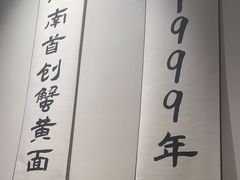 999年
南首创蟹黄面